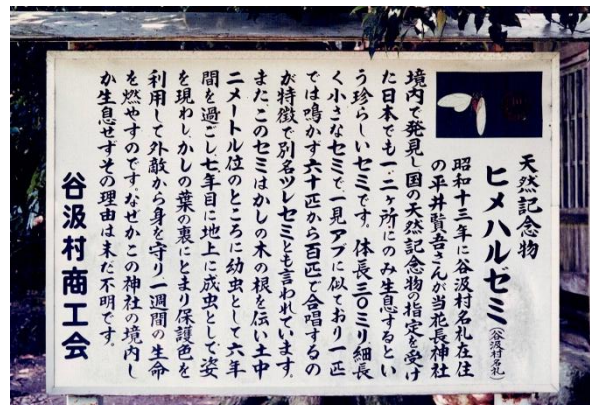 天然記念物
ヒメハルゼミ(谷汲村名礼)
昭和十三年に谷汲村名礼在住
の平井賢吾さんが当花長神社
境内で発見し国の天然記念物の指定を受け
た日本でも一、二ヶ所にのみ生息するとい
う珍らしいセミです。体長三〇ミリ、細長
く小さなセミで、一見アブに似ており一匹
では鳴かず六十匹から百匹で合唱するの
が特徴で別名ツレセミとも言われています。
また、このセミはかしの木の根を伝い土中
二メートル位のところに幼虫として六年
間を過ごし、七年目に地上に成虫として姿
を現わし、かしの葉の裏にとまり保護色を
利用して外敵から身を守り、一週間の生命
を燃やすのです。なぜかこの神社の境内し
か生息せずその理由は未だ不明です。
谷汲村商工会